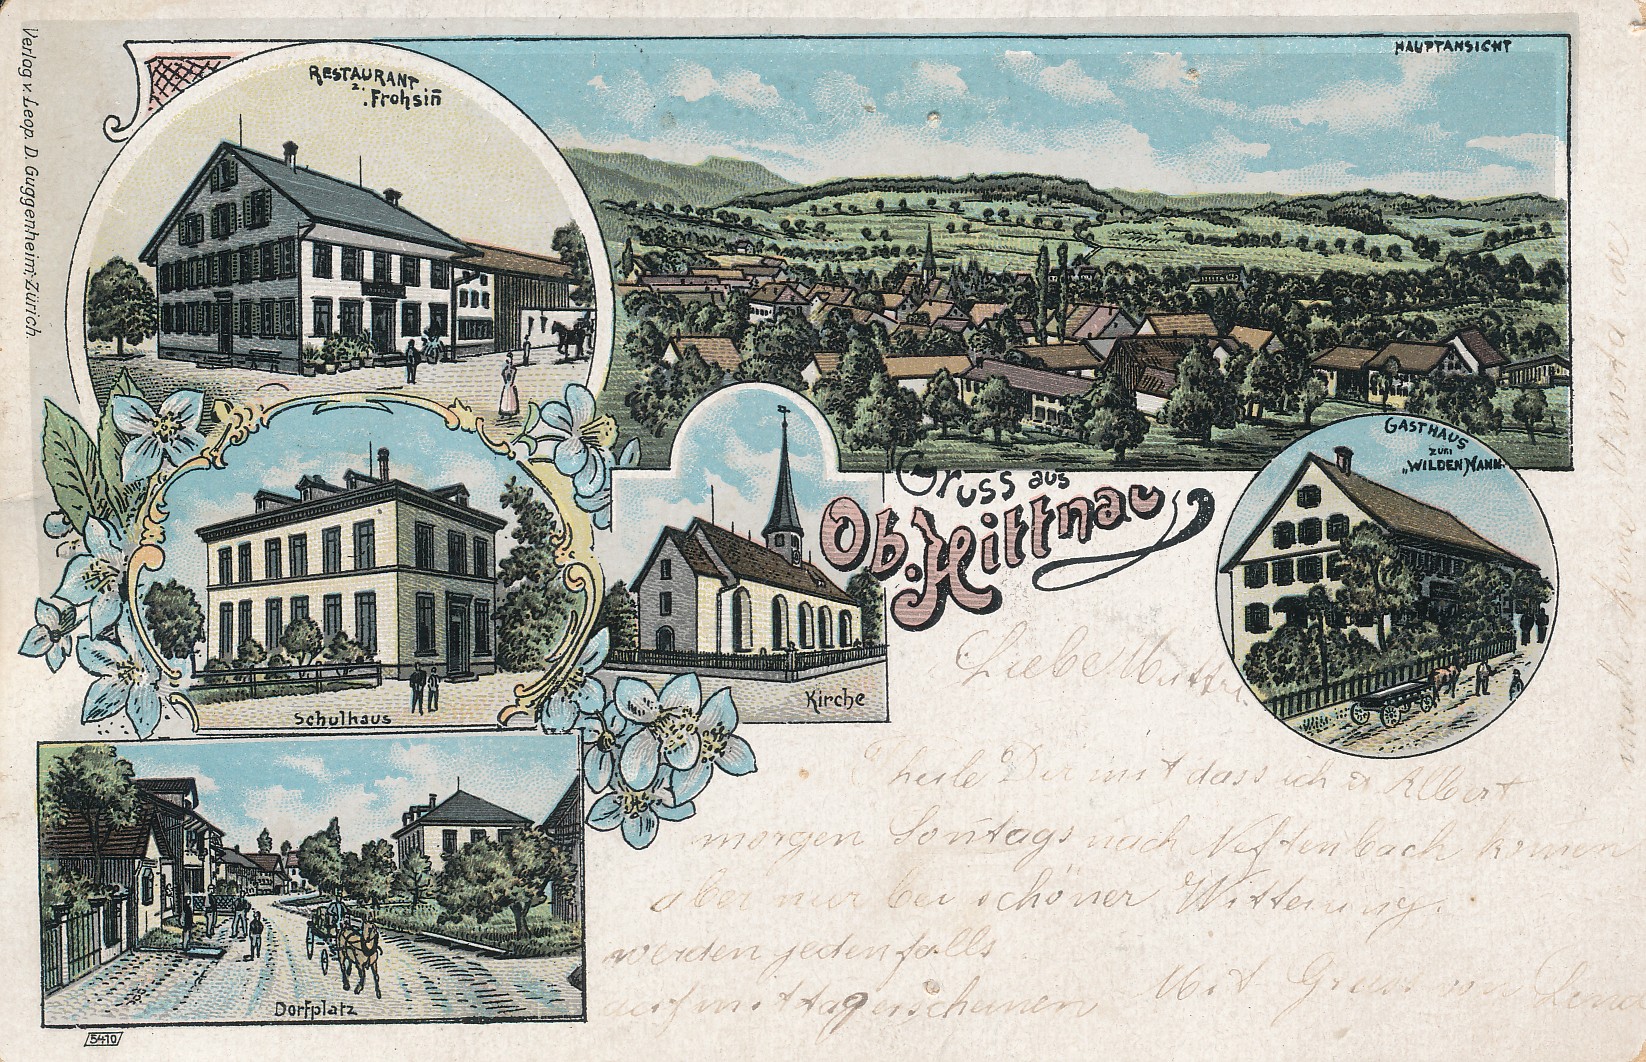 Verlag v. Leop. D. Guggenheim, Zürich.
RESTAURANT
z. Frohsiñ
HAUPTANSICHT
Gruss aus
Ob. Hittnau
GASTHAUS
ZUM
„WILDEN MANN"
Schulhaus
Kirche
Dorfplatz
5410
Liebe
Theile Dir mit dass ich & Albert
morgen Soñtags nach Neftenbach komen
aber nur bei schöner Witterung.
werden jedenfalls
auf mittag erscheinen
Mit Gruss von